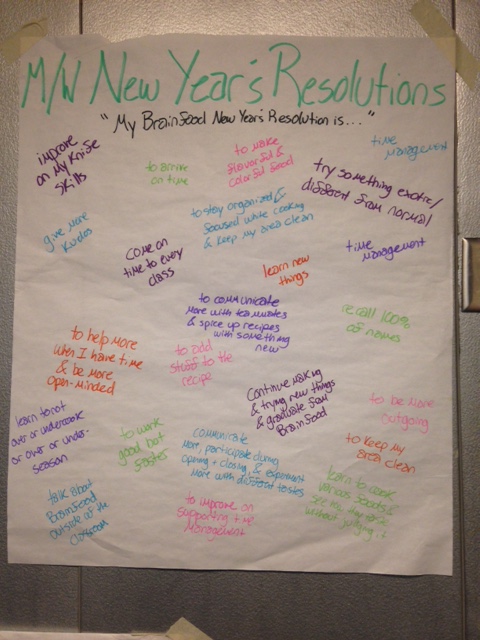 M/W New Year's Resolutions
"My Brainfood New Year's Resolution is..."
improve
on my knife
skills
to arrive
on time
to make
flavorful &
colorful food
time
management
try something exotic/
different from normal
give more
kudos
to stay organized &
focused while cooking
& keep my area clean
come on
time to every
class
learn new
things
time
management
to communicate
more with teammates
& spice up recipes
with something
new
recall 100%
of names
to help more
with I have time
& be more
open-minded
to add
stuff to the
recipe
continue making
& trying new things
& graduate from
Brainfood
to be more
outgoing
learn to not
over or undercook
or over or under-
season
to work
good but
faster
communicate
more, participate during
opening + closing, & experiment
more with different tastes
to keep my
area clean
talk about
Brainfood
outside of the
classroom
to improve on
supporting + time
management
learn to cook
various foods &
without judging it